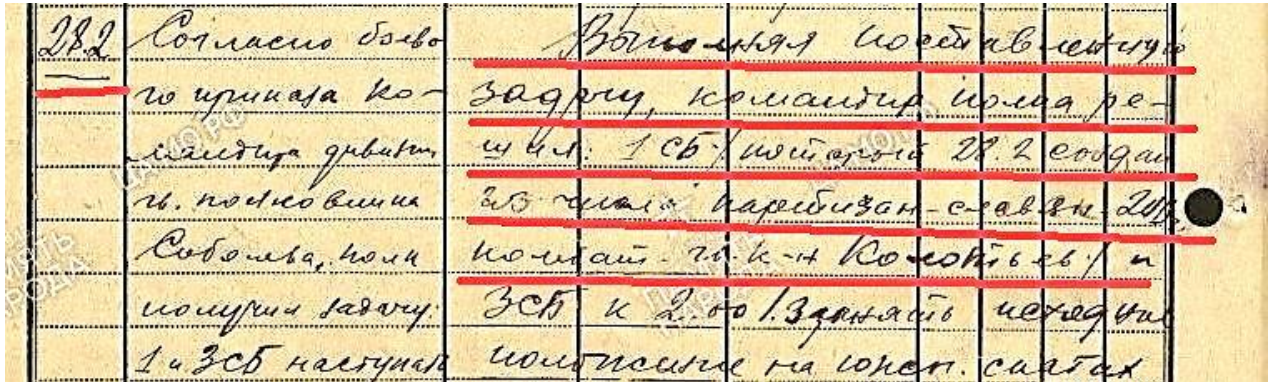 28.2
Согласно боево
го приказа ко-
мандира дивизии
гв. полковника
Соболева, полк
получил задачу:
1 и 3 СБ наступать
Выполняя поставленную
задачу, командир полка ре-
шил: 1 СБ /который 28.2 создан
из числа партизан-славян-
комбат- гв. к-н / и
3 СБ к 2.00 1.3 занять исходное
положение на южн. скатах
ЦАМО РФ
ПАМЯТЬ
НАРОДА